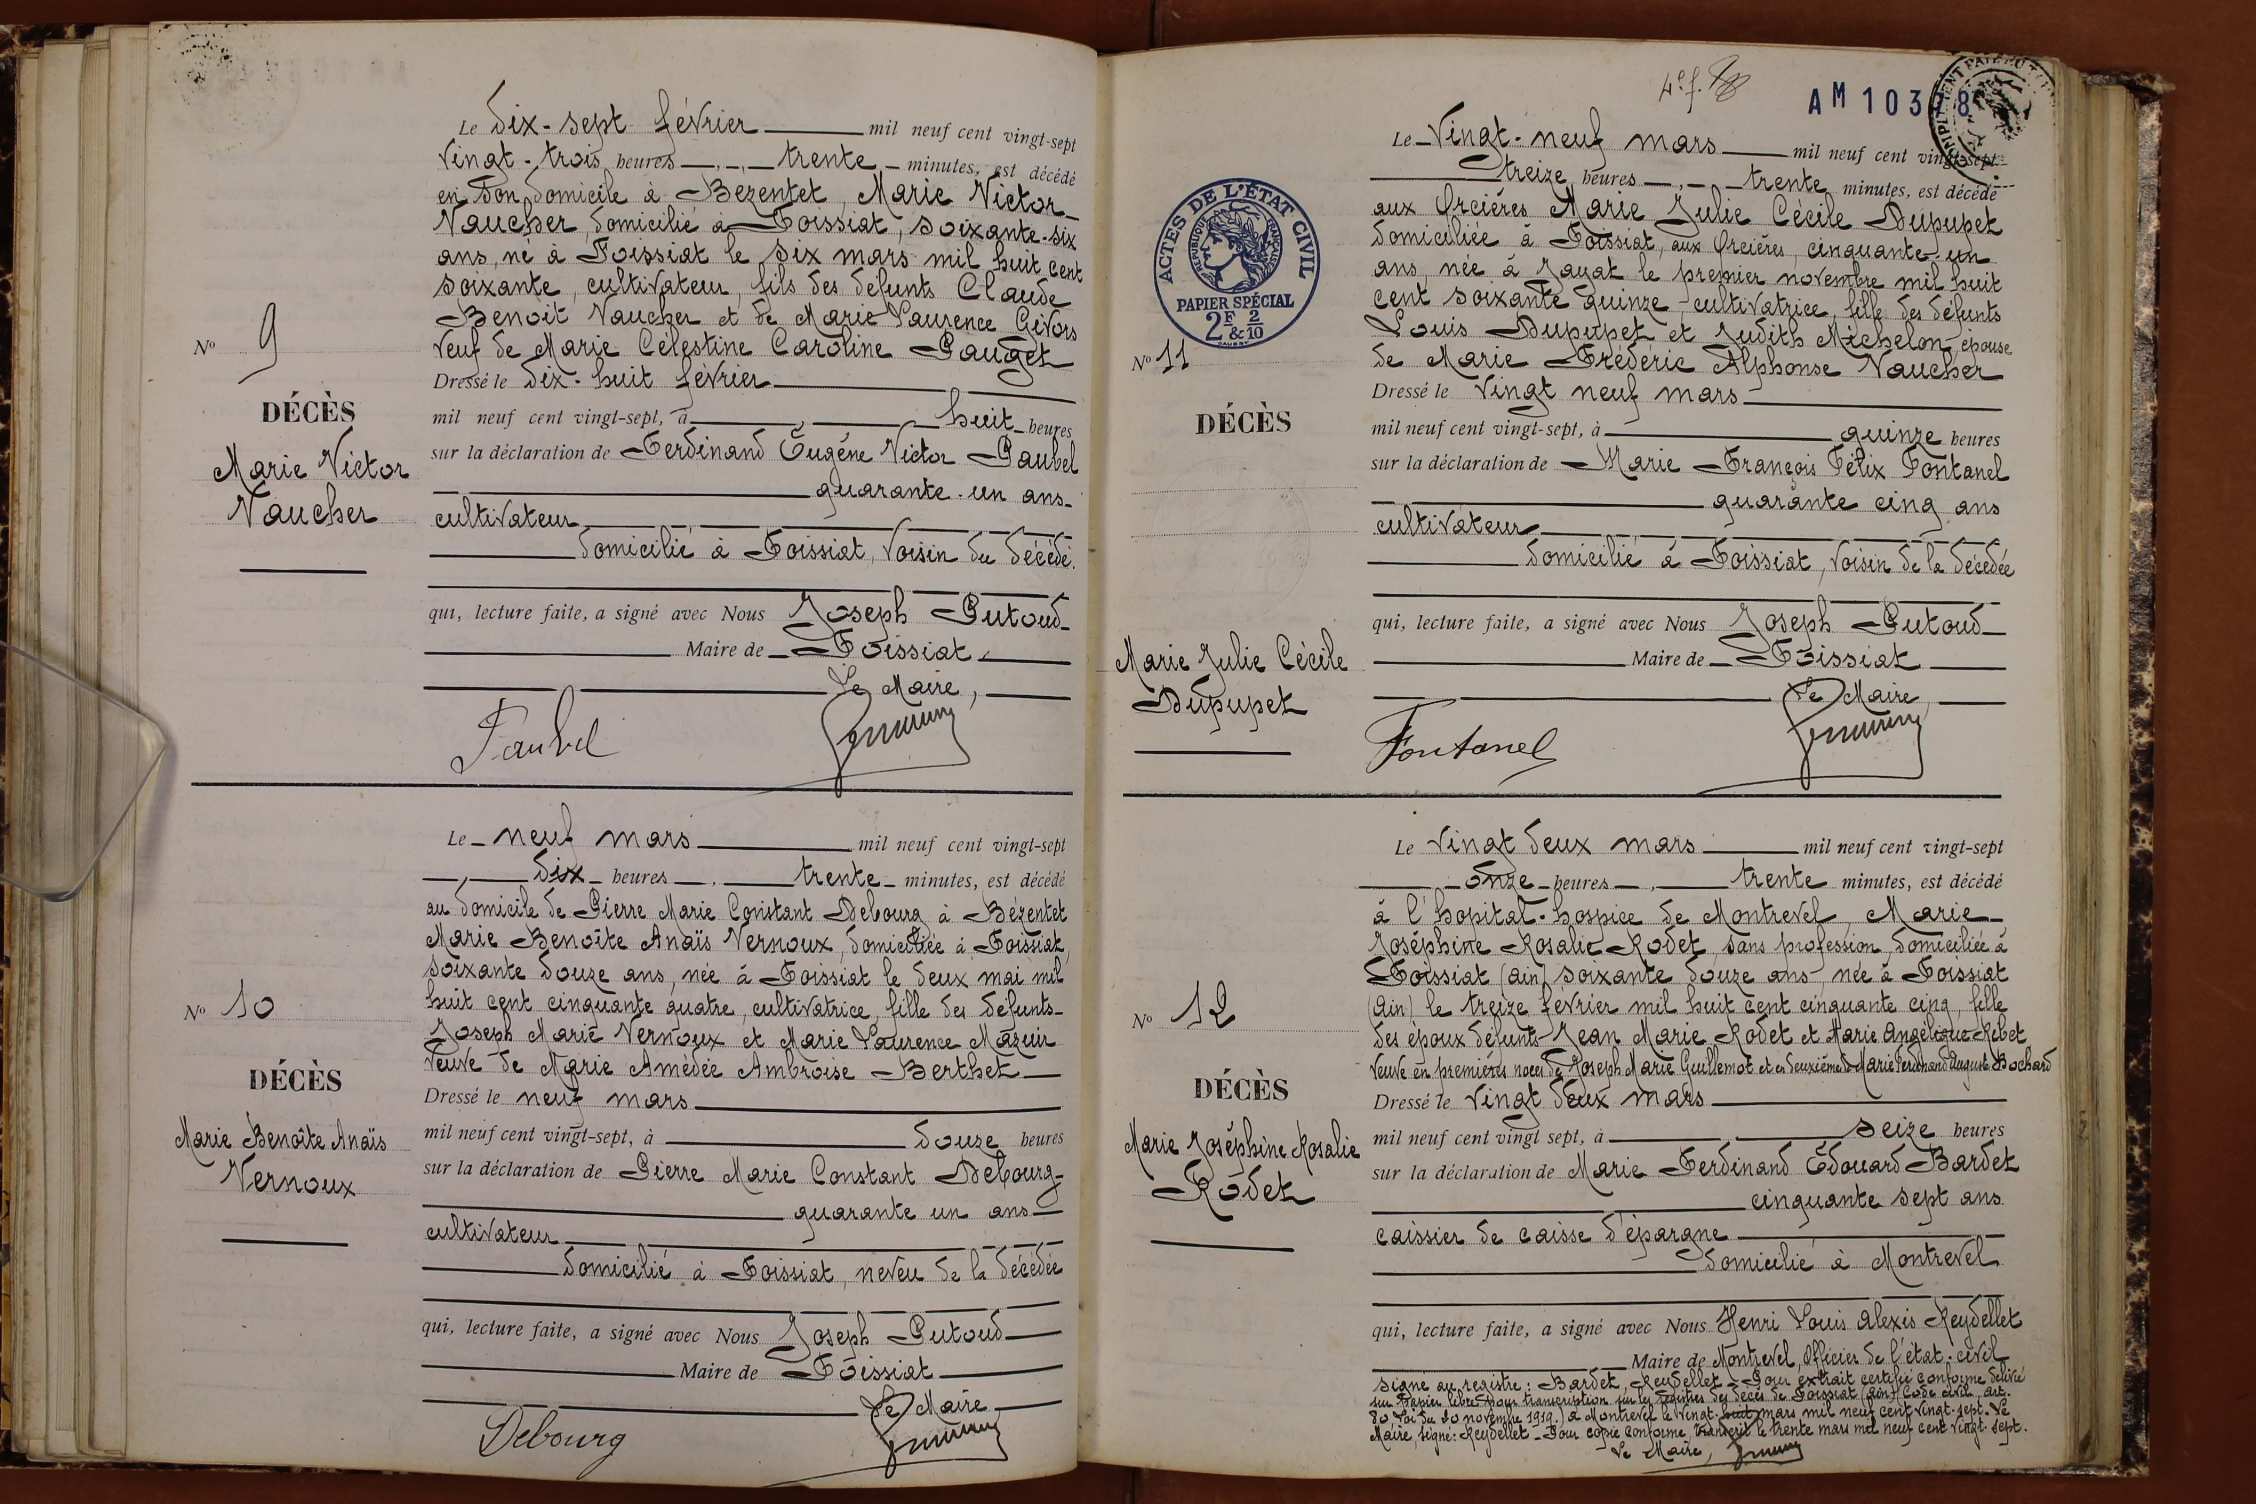 Le dix-sept février mil neuf cent vingt-sept
vingt-trois heures trente minutes, est décédé
en son domicile à Bezentet, Marie Victor
Vaucher, domicilié à Foissiat, soixante-six
ans, né à Foissiat le six mars mil huit cent
soixante, cultivateur, fils des défunts Claude
Benoit Vaucher et de Marie Laurence Givors
veuf de Marie Célestine Caroline Pauget
Nº 9
Dressé le dix-huit février
DÉCÈS
mil neuf cent vingt-sept, à huit heures
sur la déclaration de Ferdinand Eugène Victor Paubel
Marie Victor
Vaucher
quarante-un ans
cultivateur
domicilié à Foissiat, voisin du décédé.
qui, lecture faite, a signé avec Nous Joseph Putoud
Maire de Foissiat
Le Maire,
Paubel
Le neuf mars mil neuf cent vingt-sept
dix heures trente minutes, est décédé
au domicile de Pierre Marie Constant Debourg à Bézentet
Marie Benoîte Anaïs Vernoux, domiciliée à Foissiat,
soixante douze ans, née à Foissiat le deux mai mil
huit cent cinquante quatre, cultivatrice, fille des défunts
Joseph Marie Vernoux et Marie Laurence Mazuir
veuve de Marie Amédée Ambroise Berthet
Nº 10
DÉCÈS
Marie Benoîte Anaïs
Vernoux
Dressé le neuf mars
mil neuf cent vingt-sept, à douze heures
sur la déclaration de Pierre Marie Constant Debourg
quarante un ans
cultivateur
domicilié à Foissiat, neveu de la décédée
qui, lecture faite, a signé avec Nous Joseph Putoud
Maire de Foissiat
Le Maire
Debourg
4e f.
AM 103 8
ACTES DE L'ÉTAT CIVIL
RÉPUBLIQUE FRANÇAISE
PAPIER SPÉCIAL
2F & 2/10
Le vingt-neuf mars mil neuf cent vingt-sept
treize heures trente minutes, est décédé
aux Orcières Marie Julie Cécile Dupupet
domiciliée à Foissiat, aux Orcières, cinquante-un
ans, née à Jayat le premier novembre mil huit
cent soixante quinze, cultivatrice, fille des défunts
Louis Dupupet et Judith Michelon, épouse
de Marie Fréderic Alphonse Vaucher
Nº 11
Dressé le vingt neuf mars
DÉCÈS
mil neuf cent vingt-sept, à quinze heures
sur la déclaration de Marie François Félix Fontanel
quarante cinq ans
cultivateur
domicilié à Foissiat, voisin de la décédée
qui, lecture faite, a signé avec Nous Joseph Putoud
Marie Julie Cécile
Dupupet
Maire de Foissiat
Le Maire,
Fontanel
Le vingt deux mars mil neuf cent vingt-sept
onze heures trente minutes, est décédé
à l'hopital-hospice de Montrevel, Marie
Joséphine Rosalie Rodet, sans profession, domiciliée à
Foissiat (Ain) soixante douze ans, née à Foissiat
(Ain) le treize fevrier mil huit cent cinquante cinq, fille
des époux défunts Jean Marie Rodet et Marie Angélique Rebet
veuve en premières noces de Joseph Marie Guillemot et en deuxième de Marie Ferdinand Auguste Bochard
Nº 12
DÉCÈS
Marie Joséphine Rosalie
Rodet
Dressé le vingt deux mars
mil neuf cent vingt sept, à seize heures
sur la déclaration de Marie Ferdinand Édouard Bardet
cinquante sept ans
caissier de caisse d'épargne
domicilié à Montrevel
qui, lecture faite, a signé avec Nous Henri Louis Alexis Reydellet
Maire de Montrevel, officier de l'état-civil
Signé au registre: Bardet, Reydellet - Pour extrait certifié conforme délivré
sur Papier libre pour transcription sur les registres des décès de Foissiat (Ain) (Code civil, art.
80 Loi du 20 novembre 1919.) à Montrevel le vingt-huit mars mil neuf cent vingt-sept. Le
Maire, signé: Reydellet - Pour copie conforme, transcrit le trente mars mil neuf cent vingt-sept.
Le Maire,